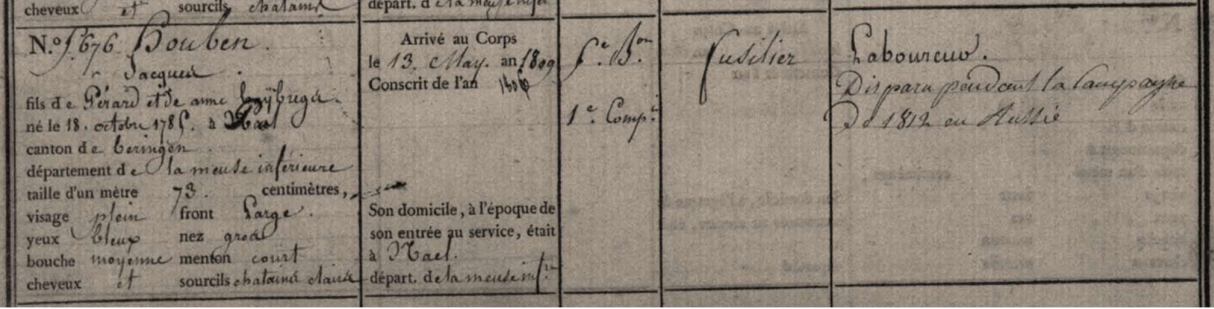 cheveux et sourcils chataind
départ. de la meuse infre
N.º 5676. Houben.
Jacques.
fils de Gérard et de anne
né le 18. octobre 1785. à
canton de beringen
département de la meuse inférieure
taille d'un mètre 73. centimètres,
visage plein front Large.
yeux bleux nez gros
bouche moyenne menton court
cheveux et sourcils chataind clairs
Arrivé au Corps
le 13. May. an 1809
Conscrit de l'an 1806
Son domicile, à l'époque de
son entrée au service, était
à
départ. de la meuse infre
5e. Bon
1e. Compe.
fusilier
Laboureur.
Disparu pendant la Campagne
De 1812 en Russie